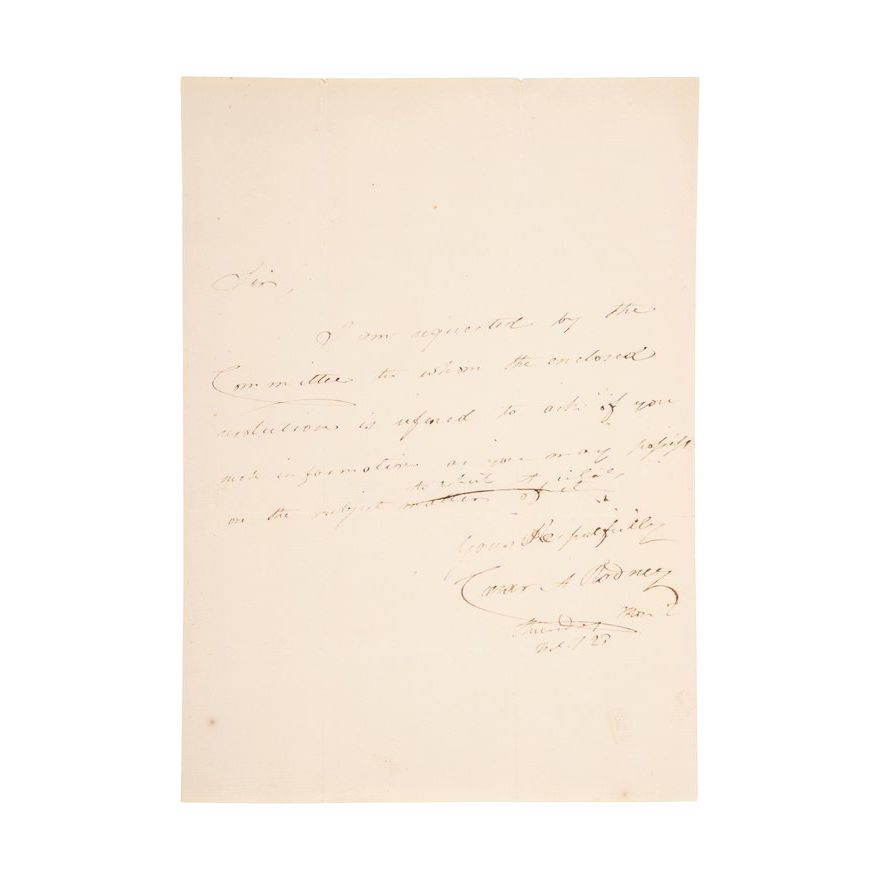 Sir,
I am requested by the
Committee to whom the enclosed
resolution is refered to ask of you
such information as you may possess
to which it relates
on the subject matter of it.
Yours Respectfully
Caesar A Rodney
Thursday